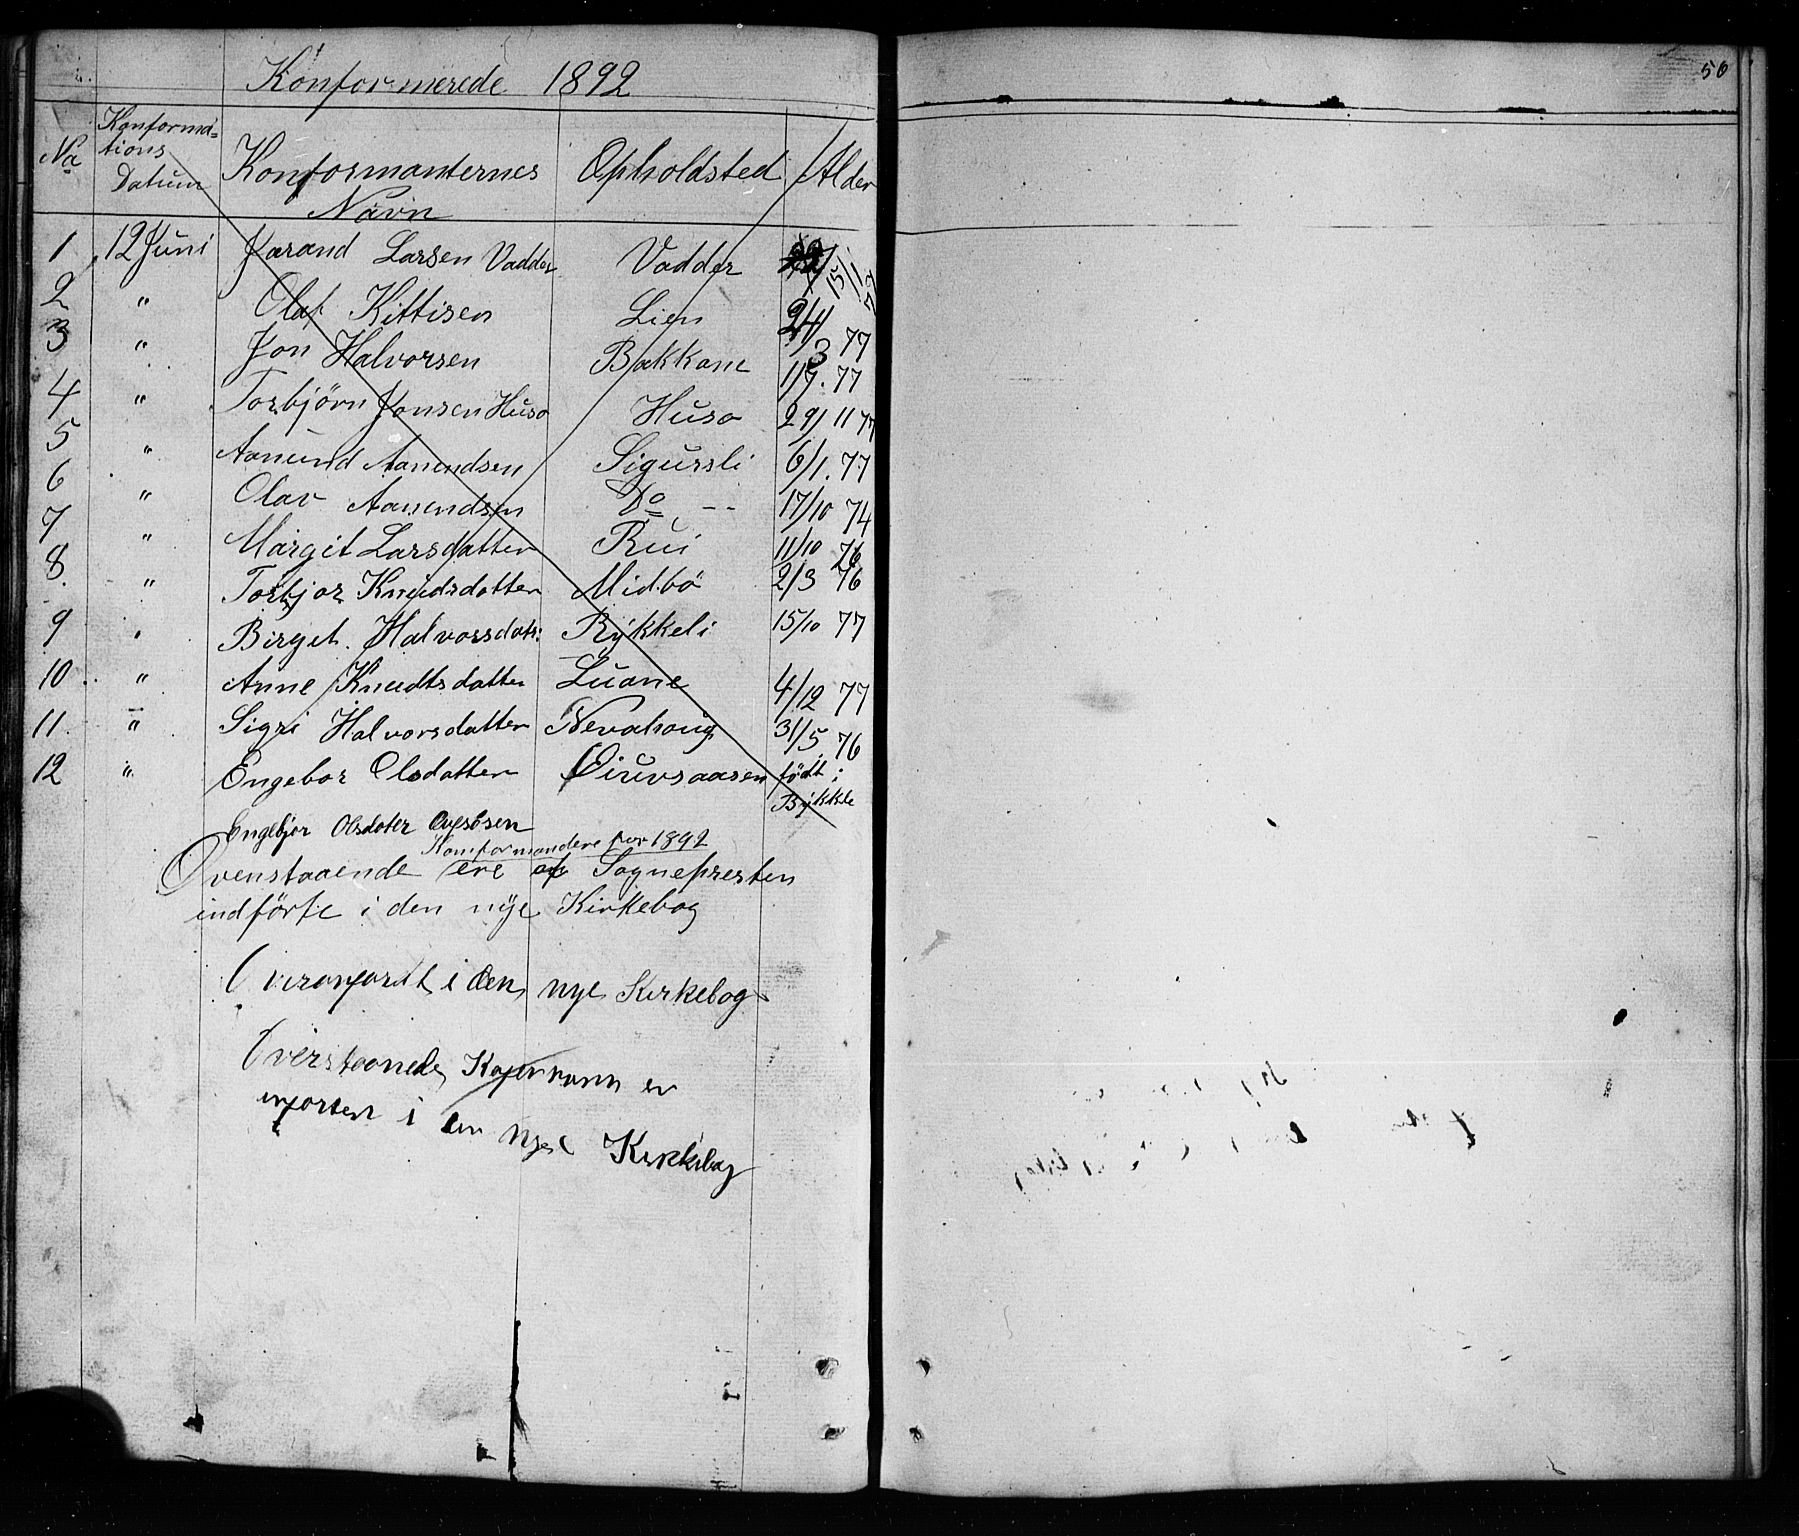 Konformerede 1892
50
No Konforma=
tions
Datum Konformanternes
Navn Opholdsted Alder
1 12 Juni Jarand Larsen Vadder Vadder 15/11
2 " Olaf Kittisen Lien 24/3 77
3 " Jon Halvorsen Bakkane 1/7. 77
4 " Torbjörn Jonsen Huso Huso 29/11 77
5 " Aanund Aanendsen Sigursli 6/1. 77
6 " Olav Aanendsen Do -- 17/10 74
7 " Margit Larsdatter Rui 11/10 76
8. " Torbjor Knudsdatter Midbö 2/3 76
9 " Birget Halvorsdatt: Rÿkkeli 15/10 77
10 " Anne Knudtsdatter Luane 4/12 77
11. " Sigri Halvorsdatter Nevahoug 31/5 76
12 " Engebor Olsdatter födt i
Bÿkkle
Engebjor Olsdater
Konformandere for 1892
Ovenstaaende ere af Sognepresten
indförte i den nye Kirkebog
i den nye Kirkebog
Overstaaende er
i den nye Kirkebog